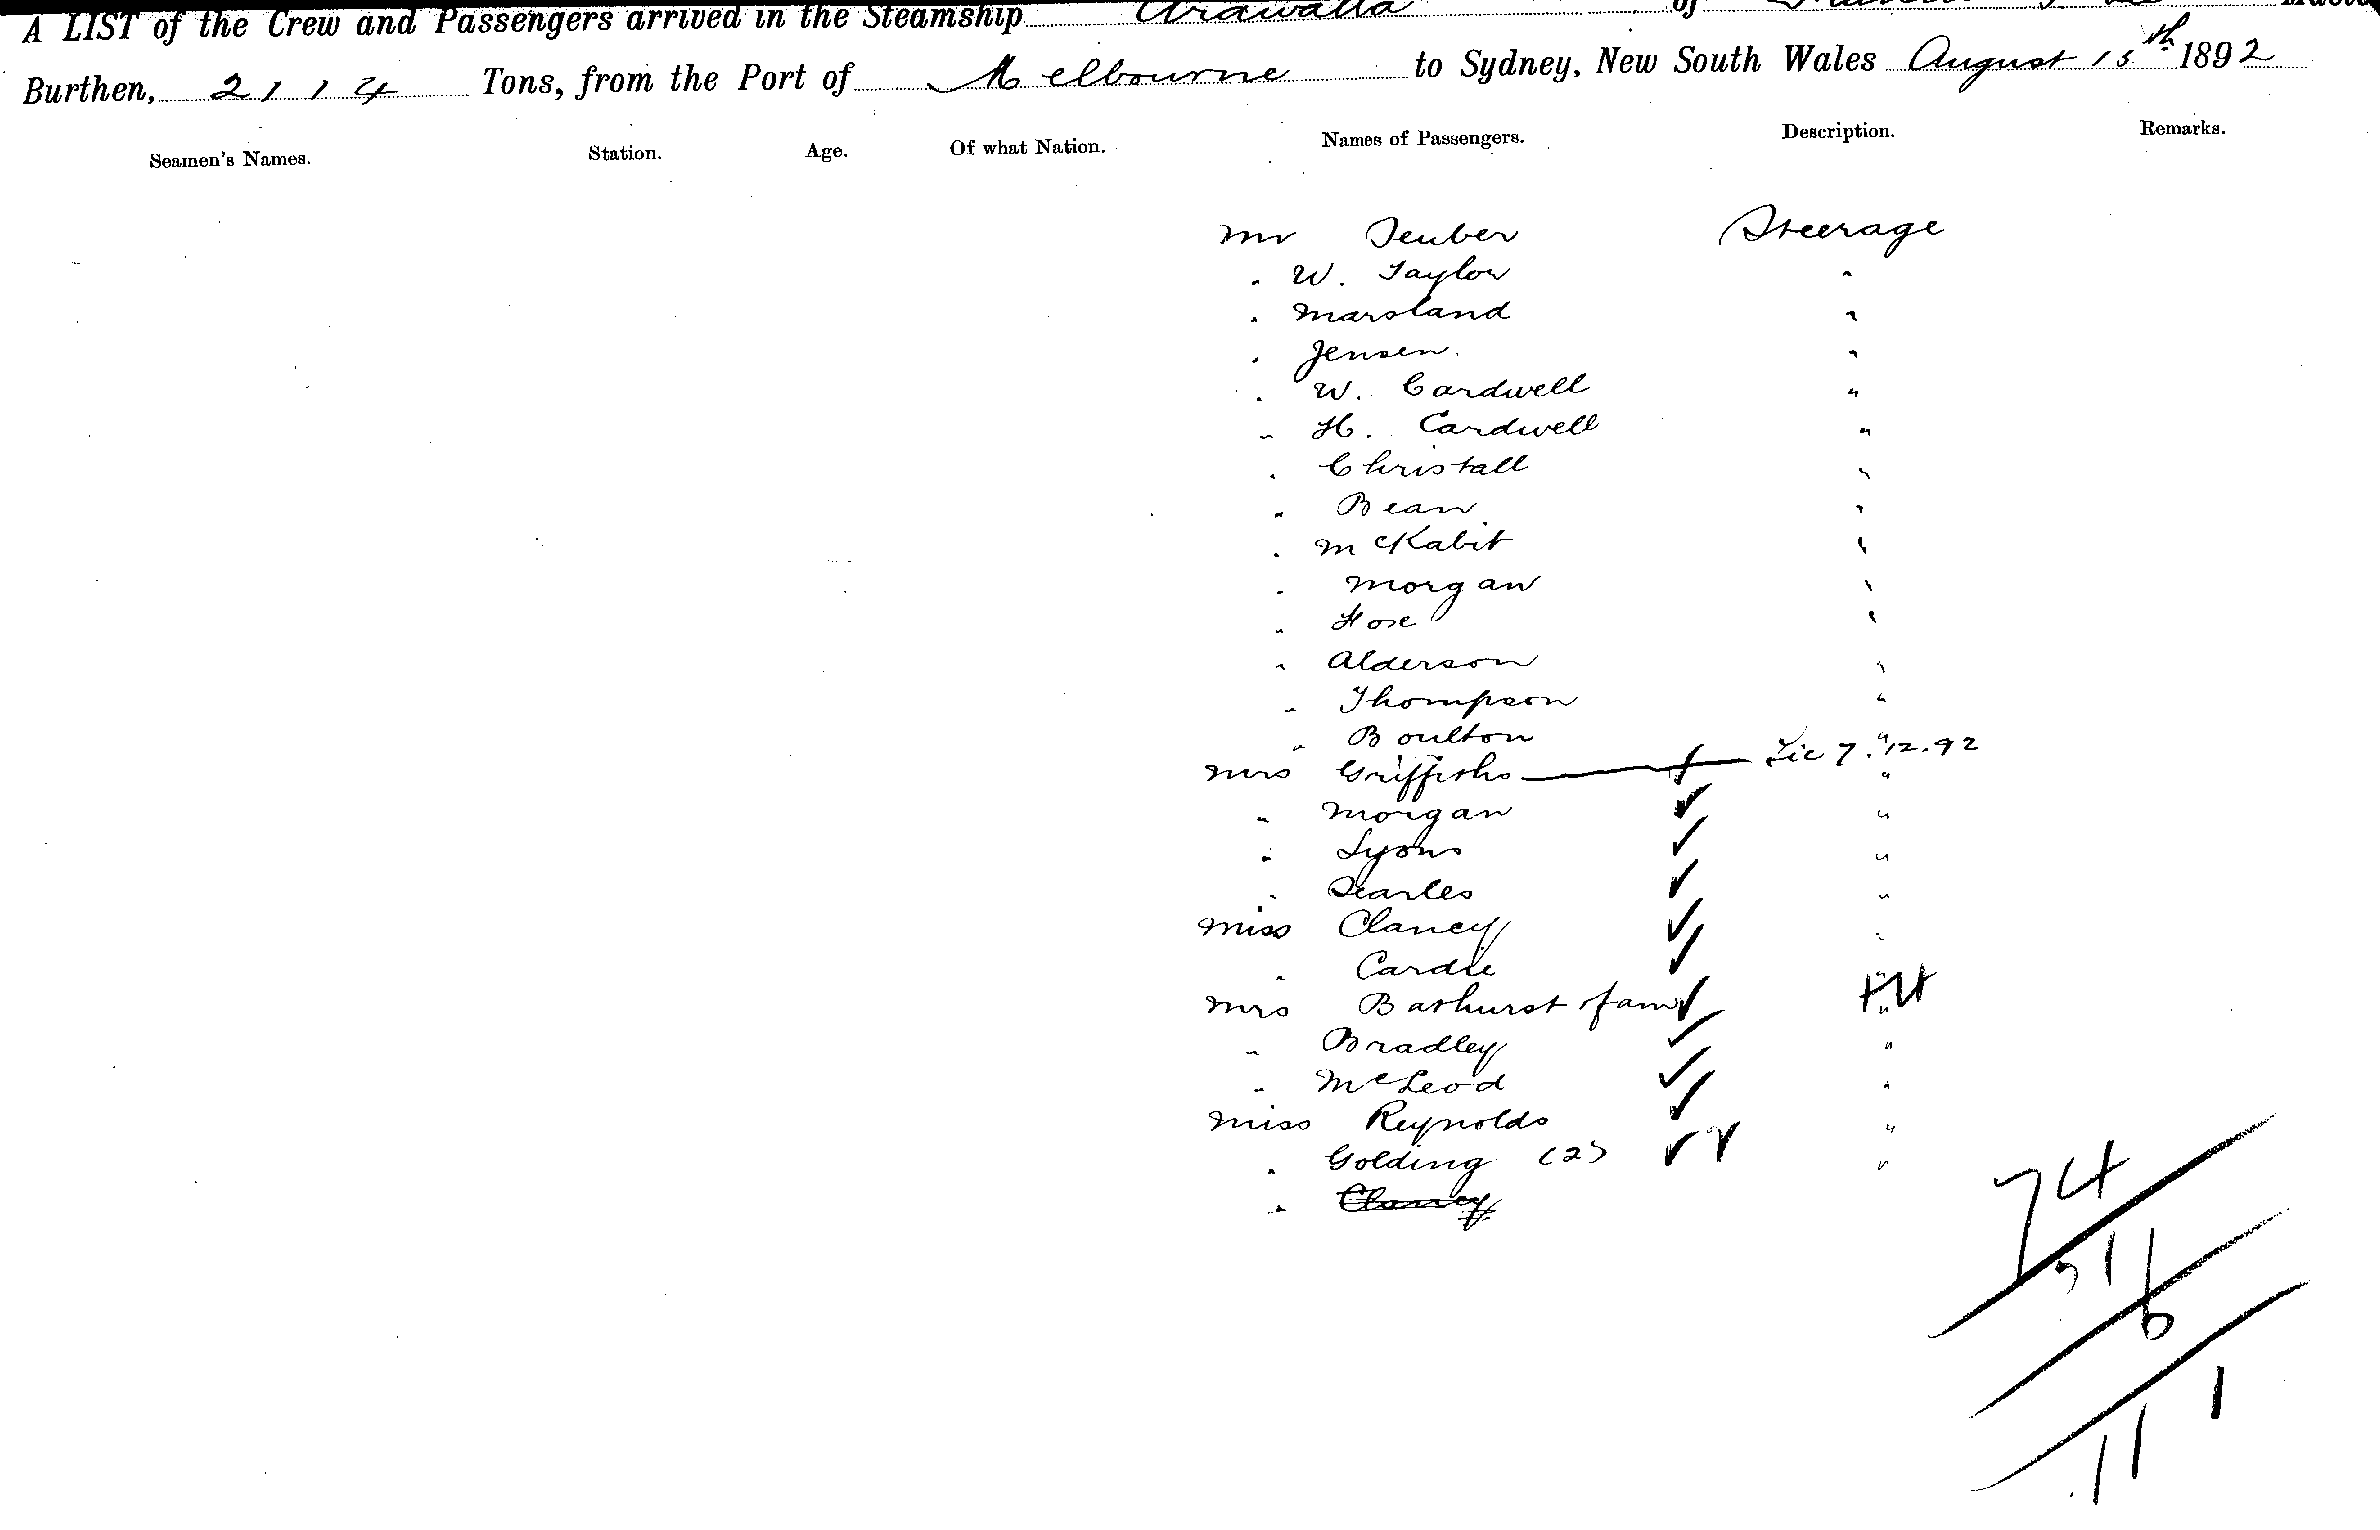 A LIST of the Crew and Passengers arrived in the Steamship Arawatta of
Burthen, 2114 Tons, from the Port of Melbourne to Sydney, New South Wales August 15th 1892
Seamen's Names. Station. Age. Of what Nation. Names of Passengers. Description. Remarks.
Mr Teuber Steerage
" W. Taylor "
" Marsland "
" Jensen "
" W. Cardwell "
" H. Cardwell "
" Christall "
" Bean "
" McKabit "
" Morgan "
" Hose "
" Alderson "
" Thompson "
" Boulton "
Mrs Griffiths Lic 7.12.92 "
" Morgan "
" Lyons "
" Searles "
Miss Clancy "
" Cardie "
Mrs Bathurst & fam "
" Bradley "
" McLeod "
Miss Reynolds "
" Golding (2) "
" Clancy
74